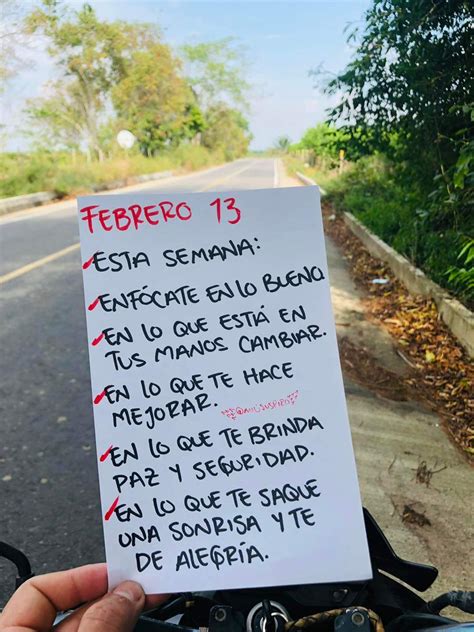 FEBRERO 13
ESTA SEMANA:
ENFÓCATE EN LO BUENO
EN LO QUE ESTÁ EN
TUS MANOS CAMBIAR.
EN LO QUE TE HACE
MEJORAR.
EN LO QUE TE BRINDA
PAZ Y SEGURIDAD.
EN LO QUE TE SAQUE
UNA SONRISA Y TE
DE ALEGRÍA.